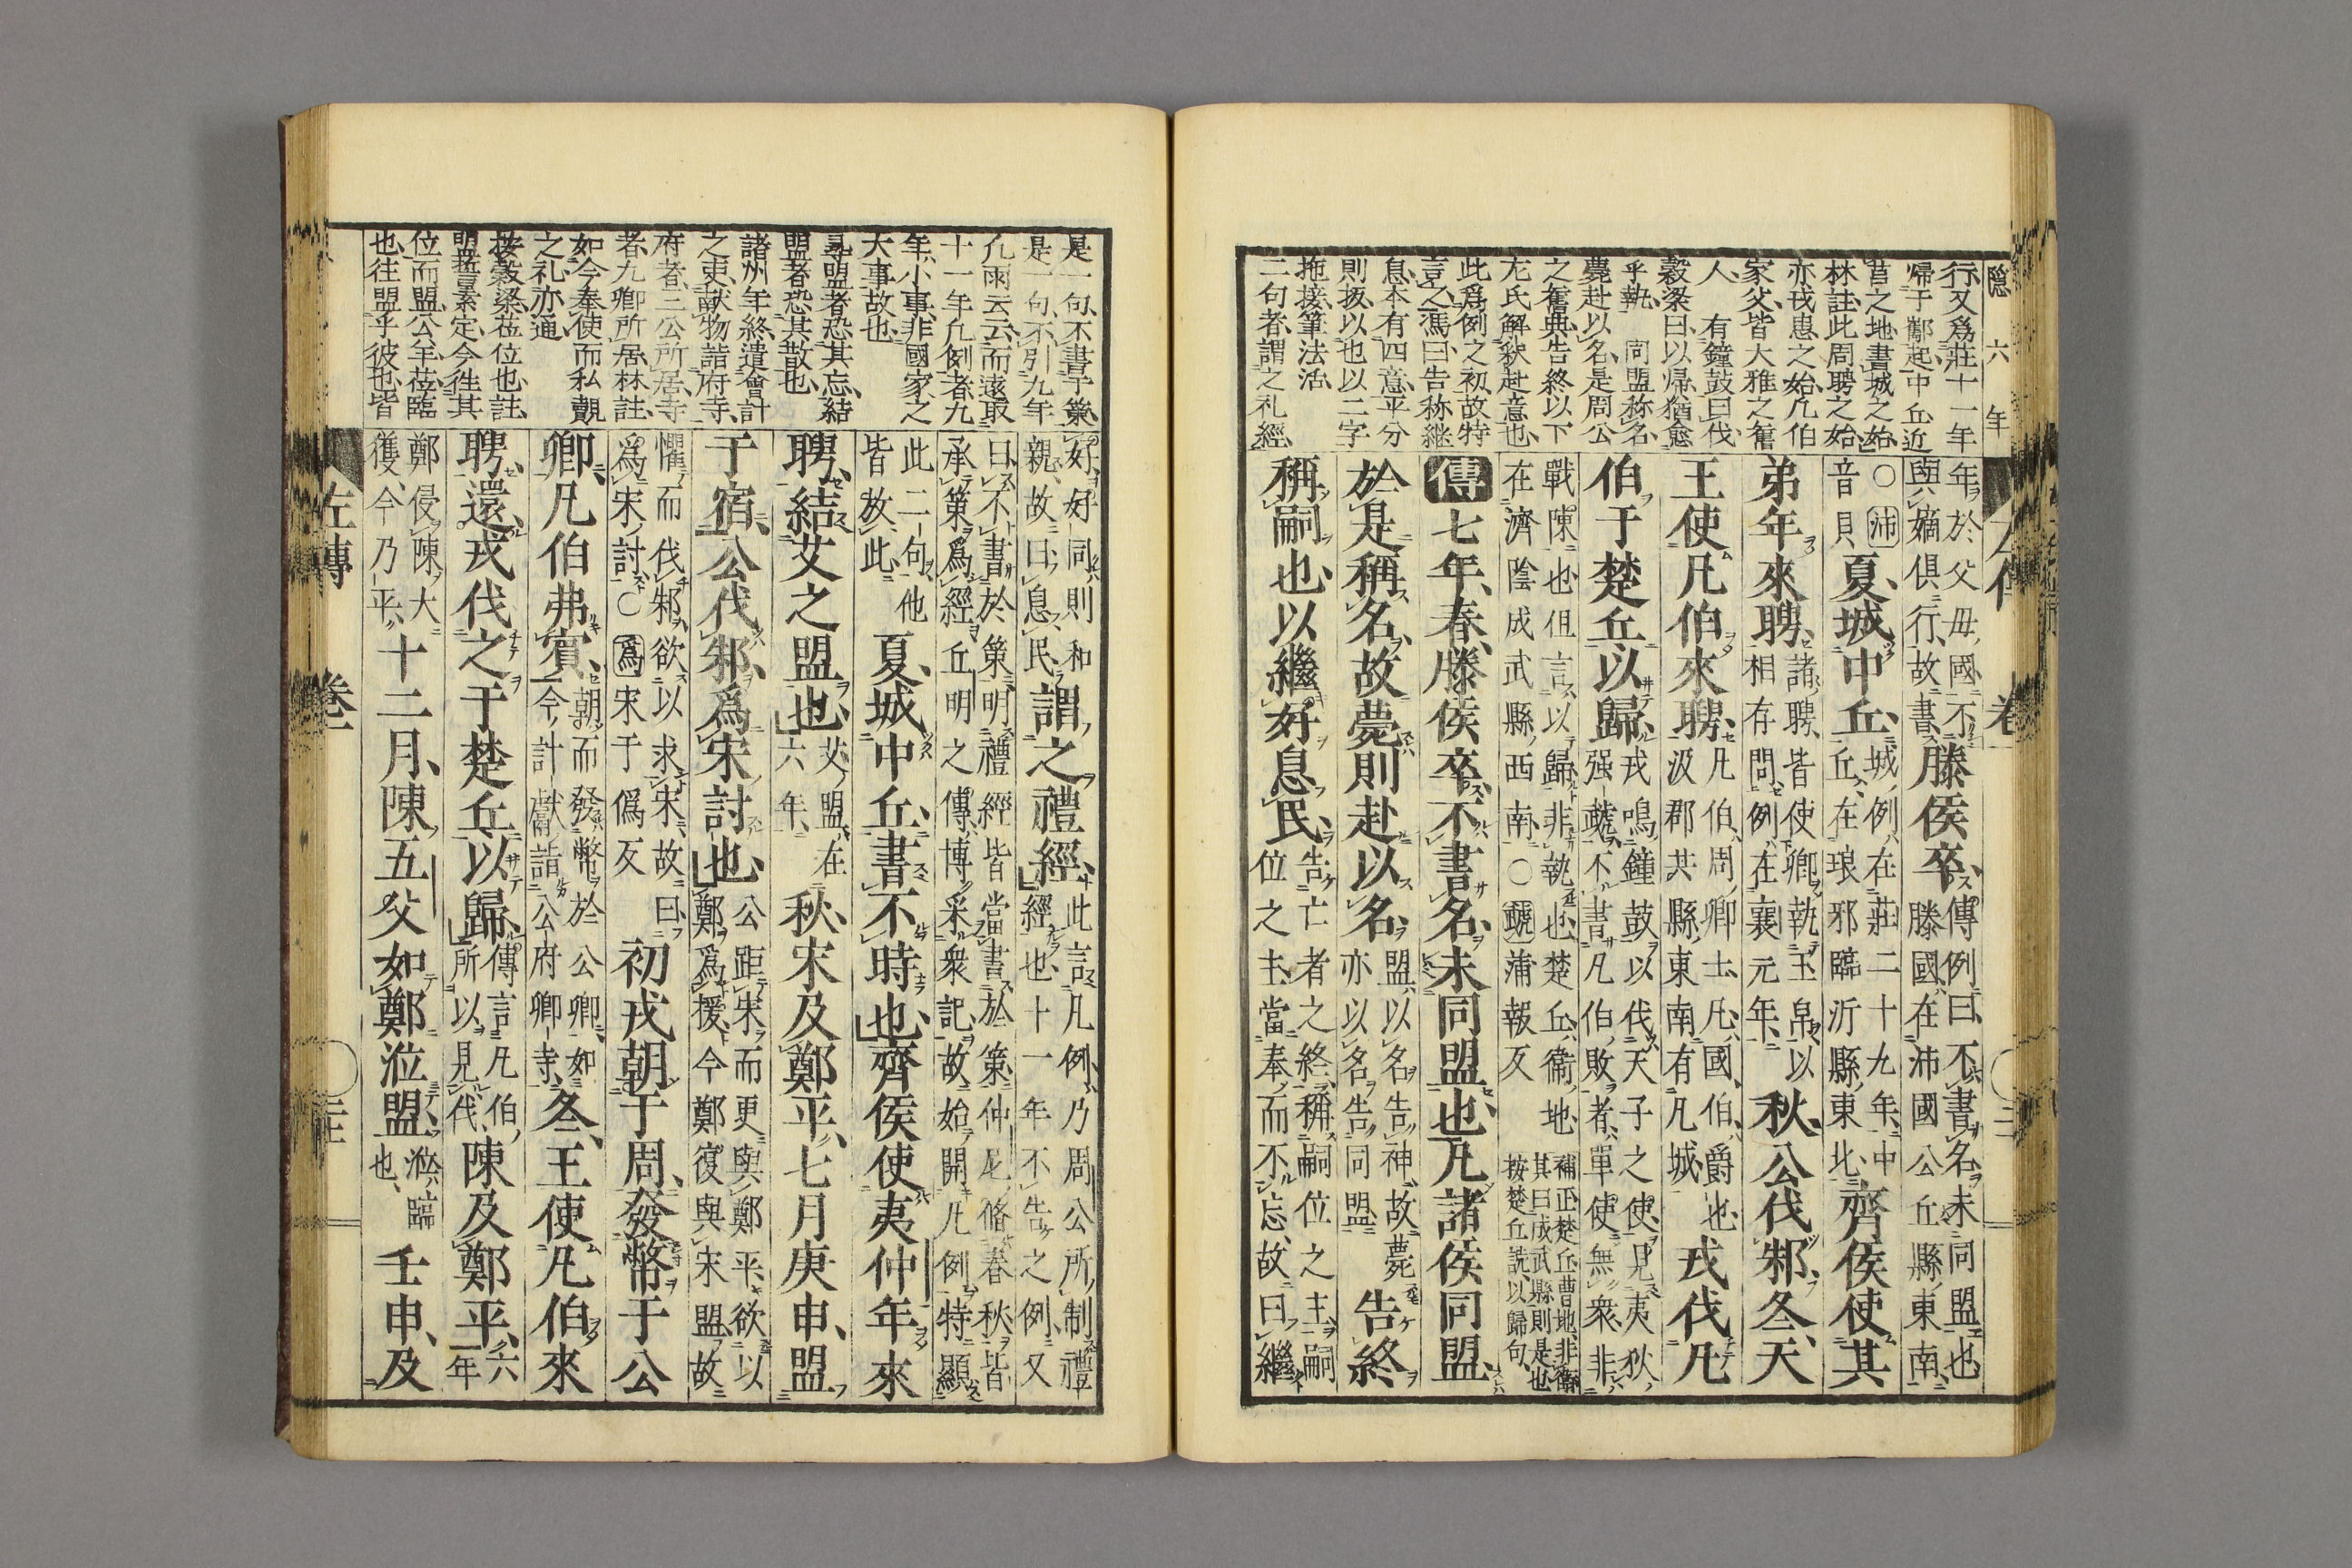 隱六年
左傳 卷一
行又爲莊十一年
歸于酅起中丘近
莒之地書城之始
林註此周聘之始
亦戎患之始凡伯
家父皆大雅之舊
人 有鐘鼓曰伐
穀梁曰以歸猶愈
乎執 同盟称名
薨赴以名是周公
之舊典告終以下
左氏解釈赴意也
此爲例之初故特
言之馮曰告称継
息本有四意平分
則扳以也以二字
拖接筆法活
二句者謂之礼經
年於父母國不
與嫡俱行故書
滕侯卒
傳例曰不書名未同盟也
滕國在沛國公丘縣東南
〇沛
音貝
夏城中丘
城例在莊二十九年中
丘在琅邪臨沂縣東北
齊侯使其
弟年來聘
諸聘皆使卿執玉帛以
相存問例在襄元年
秋公伐邾冬天
王使凡伯來聘
凡伯周卿士凡國伯爵也
汲郡共縣東南有凡城
戎伐凡
伯于楚丘以歸
戎鳴鐘鼓以伐天子之使見夷狄
强虣不書凡伯敗者單使無衆非
戰陳也但言以歸非執也楚丘衞地
在濟陰成武縣西南〇虣蒲報反
補正楚丘曹地非衞
其曰成武縣則是也
按楚丘読以歸句
傳七年春滕侯卒不書名未同盟也凡諸侯同盟
於是稱名故薨則赴以名
盟以名告神故薨
亦以名告同盟
告終
稱嗣也以繼好息民
告亡者之終稱嗣位之主嗣
位之主當奉而不忘故曰繼
是一句不書于策
是一句不引九年
凡雨云云而遠取
十一年凡例者九
年小事非國家之
大事故也
尋盟者恐其忘結
盟者恐其散也
諸州年終遣會計
之吏献物詣府寺
府者三公所居寺
者九卿所居林註
如今奉使而私覿
之礼亦通
按穀梁莅位也註
盟誓素定今徃其
位而盟公羊莅臨
也往盟乎彼也皆
好好同則和
親故曰息民
謂之禮經
此言凡例乃周公所制禮
經也十一年不告之例又
曰不書於策明禮經皆當書於策仲尼脩春秋皆
承策爲經丘明之傳博采衆記故始開凡例特顯
此二句他
皆放此
夏城中丘書不時也齊侯使夷仲年來
聘結艾之盟也
艾盟在
六年
秋宋及鄭平七月庚申盟
于宿公伐邾爲宋討也
公距宋而更與鄭平欲以
鄭爲援今鄭復與宋盟故
懼而伐邾欲以求宋故曰
爲宋討〇爲宋于僞反
初戎朝于周發幣于公
卿凡伯弗賓
朝而發幣於公卿如
今計獻詣公府卿寺
冬王使凡伯來
聘還戎伐之于楚丘以歸
傳言凡伯
所以見伐
陳及鄭平
六
年
鄭侵陳大
獲今乃平
十二月陳五父如鄭涖盟
涖臨
也
壬申及
左傳 卷一